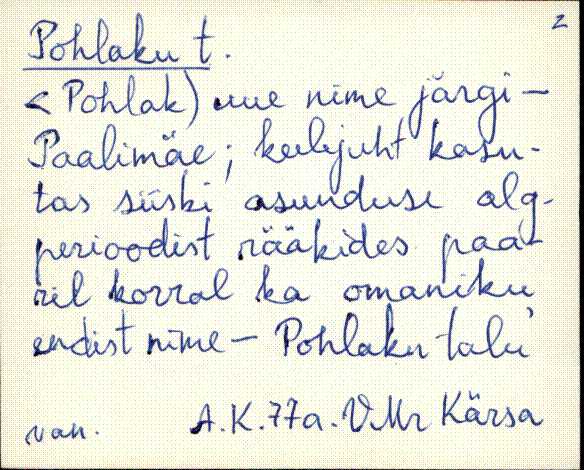 2
Pohlaku t.
< Pohlak) uue nime järgi –
Paalimäe; keelejuht kasu-
tas siiski asunduse alg-
perioodist rääkides paa-
ril korral ka omaniku
endist nime – Pohlaku talu
van. A.K. 77a. VMr Kärsa